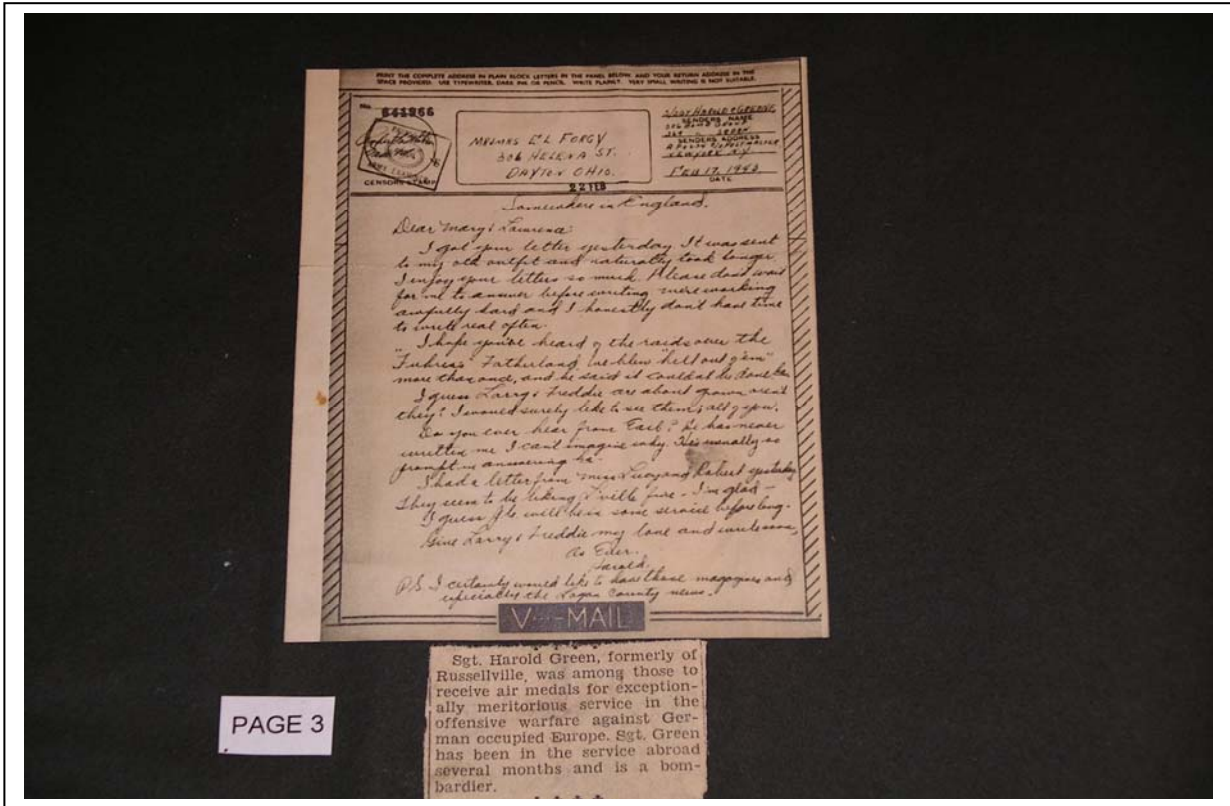 PRINT THE COMPLETE ADDRESS IN PLAIN BLOCK LETTERS IN THE PANEL BELOW, AND YOUR RETURN ADDRESS IN THE
SPACE PROVIDED. USE TYPEWRITER, DARK INK OR PENCIL. WRITE PLAINLY. VERY SMALL WRITING IS NOT SUITABLE.
No. 641966
CENSOR'S STAMP
MR & MRS E L FORGY
306 HELENA ST.
DAYTON OHIO.
S/SGT HAROLD GREENE
SENDER'S NAME
SENDER'S ADDRESS
FEB 17, 1943
DATE
22 FEB
Somewhere in England.
Dear Mary & Lawrence:
I got your letter yesterday. It was sent
to my old outfit and naturally took longer.
I enjoy your letters so much. Please don't wait
for me to answer before writing we're working
awfully hard and I honestly don't have time
to write real often.
I hope you've heard of the raids over the
"Fuhrers" Fatherland, we blew "hell out of 'em"
more than once, and he said it couldn't be done
I guess Larry & Freddie are about grown aren't
they? I would surely like to see them & all of you.
Do you ever hear from Earl? He has never
written me I can't imagine why. He's usually so
prompt in answering
I had a letter from Miss Lucy and Robert yesterday
They seem to be liking L'ville fine - I'm glad -
I guess he will be in some service before long.
Give Larry & Freddie my love and write soon,
As Ever.
Harold.
P.S. I certainly would like to have those magazines and
especially the Logan County news.
V···-MAIL
Sgt. Harold Green, formerly of
Russellville, was among those to
receive air medals for exception-
ally meritorious service in the
offensive warfare against Ger-
man occupied Europe. Sgt. Green
has been in the service abroad
several months and is a bom-
bardier.
PAGE 3